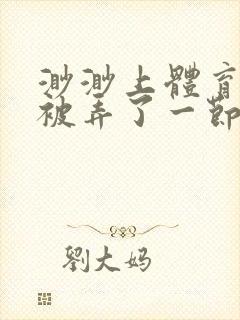 渺渺上體育
被弄了一節
劉大妈